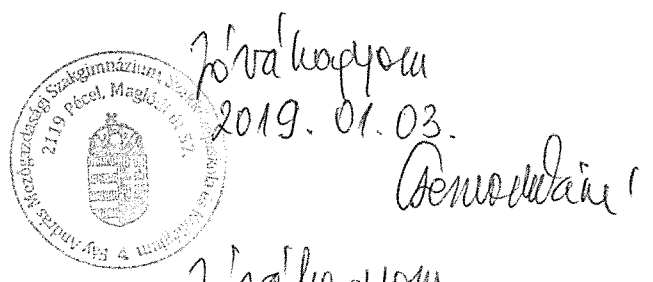 Jóváhagyom
2019. 01. 03.
Fáy András Mezőgazdasági Szakgimnázium, Szakközépiskola és Kollégium
2119 Pécel, Maglódi út 57.
Jóváhagyom